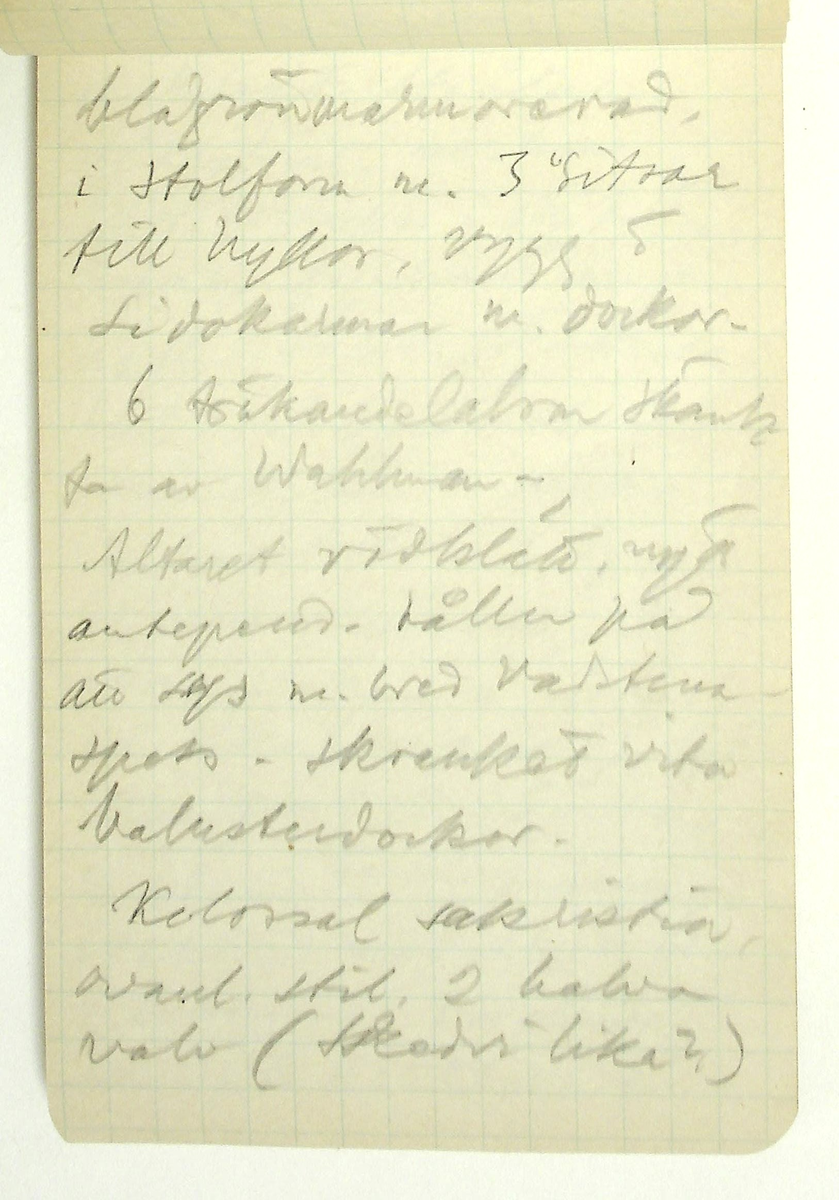 blågrönmarmorerad,
i stolform m. 3 "sitsar
till hyllor, rygg o
sidokarmar m. dockor -
6 träkandelabrar skänk
ta av Wahlman -
Altaret rödklätt, nytt
antepend. håller på
att sys m. bred Vadstena -
spets - skranket vita
balusterdockor -
Kolossal sakristia,
ovanl. stil. 2 halva
valv ( lika?)